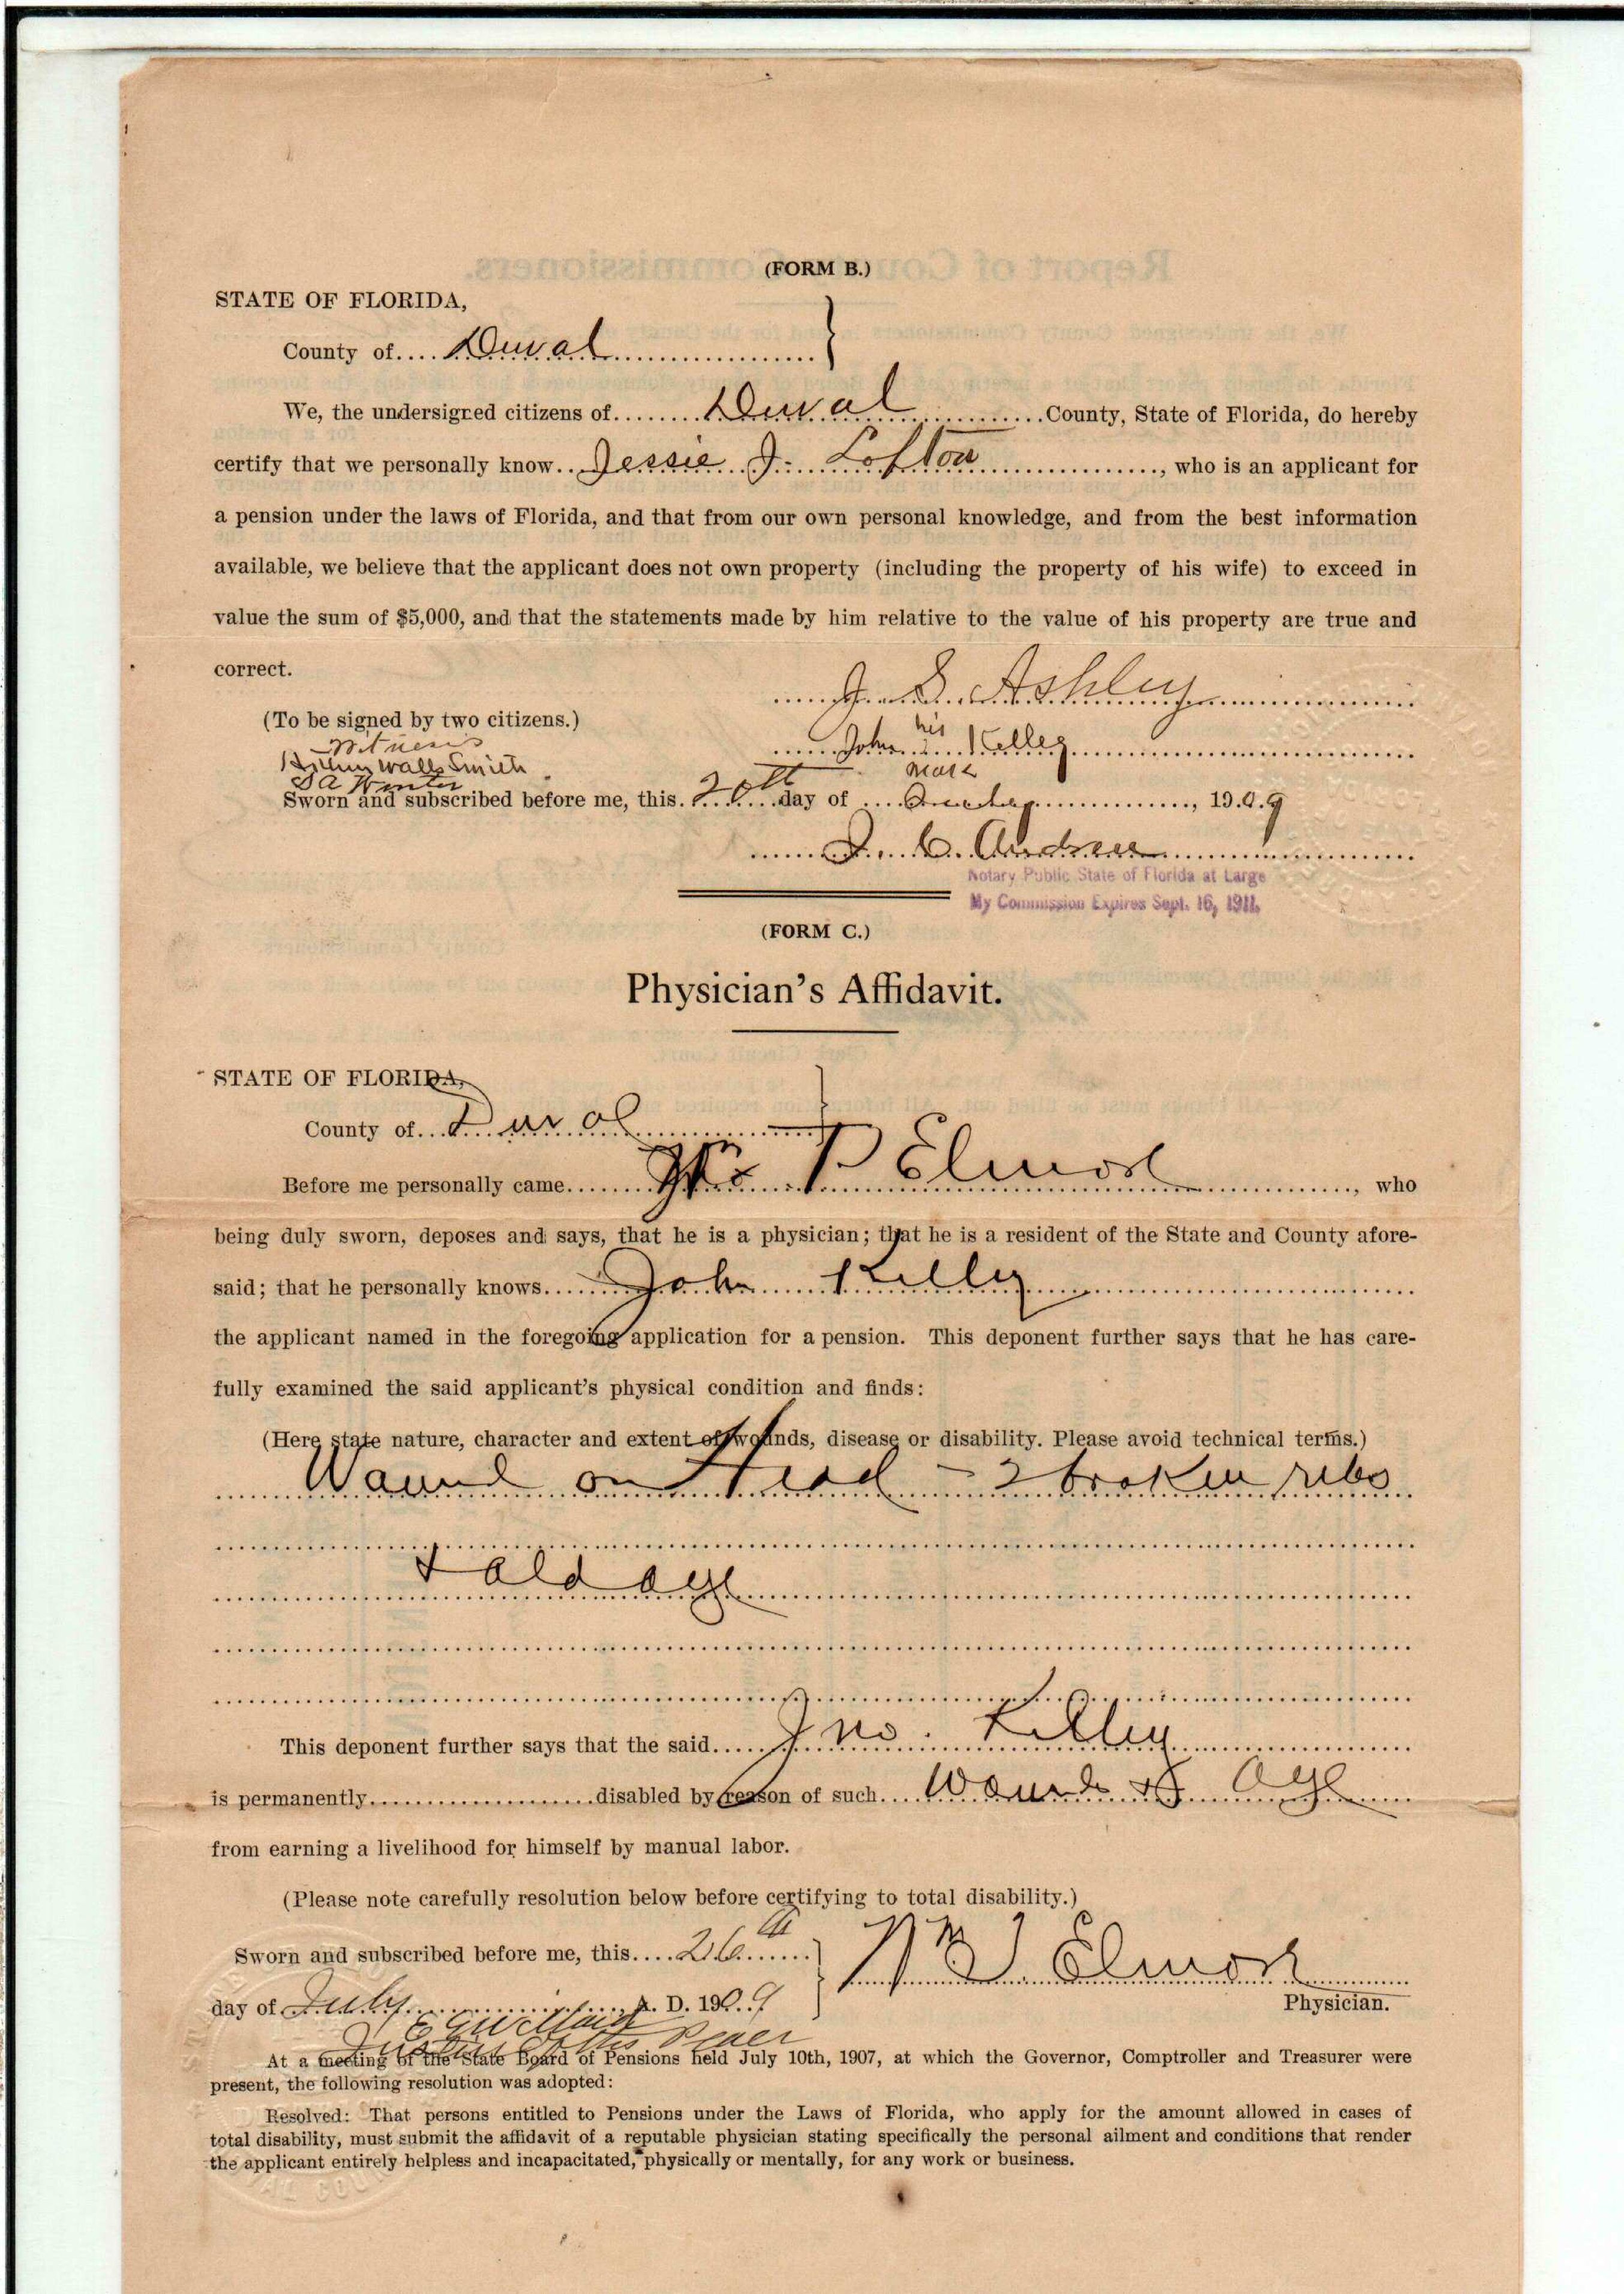 (FORM B.)
STATE OF FLORIDA,
County of.... Duval
We, the undersigned citizens of........ Duval ........County, State of Florida, do hereby
certify that we personally know.. Jessie J. Lofton ........, who is an applicant for
a pension under the laws of Florida, and that from our own personal knowledge, and from the best information
available, we believe that the applicant does not own property (including the property of his wife) to exceed in
value the sum of $5,000, and that the statements made by him relative to the value of his property are true and
correct.
J. S. Ashley
(To be signed by two citizens.)
his
Witness
John Kelley
mark
Walls Smith
S A Winter
Sworn and subscribed before me, this. 20th day of ...., 1909
J. C.
Notary Public State of Florida at Large
My Commission Expires Sept. 16, 1911.
(FORM C.)
Physician's Affidavit.
STATE OF FLORIDA,
County of... Duval
Before me personally came....... P Elmore ........, who
being duly sworn, deposes and says, that he is a physician; that he is a resident of the State and County afore-
said; that he personally knows...... John Kelley
the applicant named in the foregoing application for a pension. This deponent further says that he has care-
fully examined the said applicant's physical condition and finds:
(Here state nature, character and extent of wounds, disease or disability. Please avoid technical terms.)
Wound on Head - 2 broken ribs
+ old age
This deponent further says that the said..... Jno. Kelley
is permanently........disabled by reason of such.... Wounds & Age
from earning a livelihood for himself by manual labor.
(Please note carefully resolution below before certifying to total disability.)
Sworn and subscribed before me, this.... 26th
Wm Elmore
day of July ........ A. D. 1909
Physician.
Justice of the Peace
At a meeting of the State Board of Pensions held July 10th, 1907, at which the Governor, Comptroller and Treasurer were
present, the following resolution was adopted:
Resolved: That persons entitled to Pensions under the Laws of Florida, who apply for the amount allowed in cases of
total disability, must submit the affidavit of a reputable physician stating specifically the personal ailment and conditions that render
the applicant entirely helpless and incapacitated, physically or mentally, for any work or business.